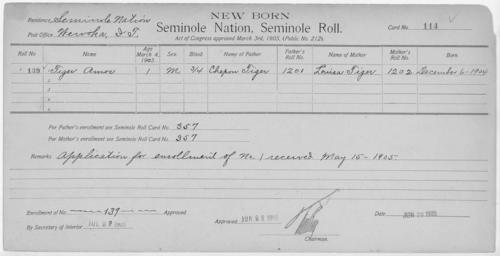 NEW BORN
Residence, Seminole Nation
Seminole Nation, Seminole Roll.
Card No. 114
Post Office, Wewoka, I.T.
Act of Congress approved March 3rd, 1905, (Public No. 212).
Roll No. Name Age March 4, 1905. Sex. Blood. Name of Father Father's Roll No. Name of Mother Mother's Roll No. Born.
139 Tiger Amos 1 M 3/4 Chepon Tiger 1201 Louisa Tiger 1202 December 6-1904
For Father's enrollment see Seminole Roll Card No. 357
For Mother's enrollment see Seminole Roll Card No. 357
Remarks Application for enrollment of No. 1 received May 15-1905
Enrollment of No. 139 Approved
Approved 1905
Date 1905
By Secretary of Interior 1905
Chairman.